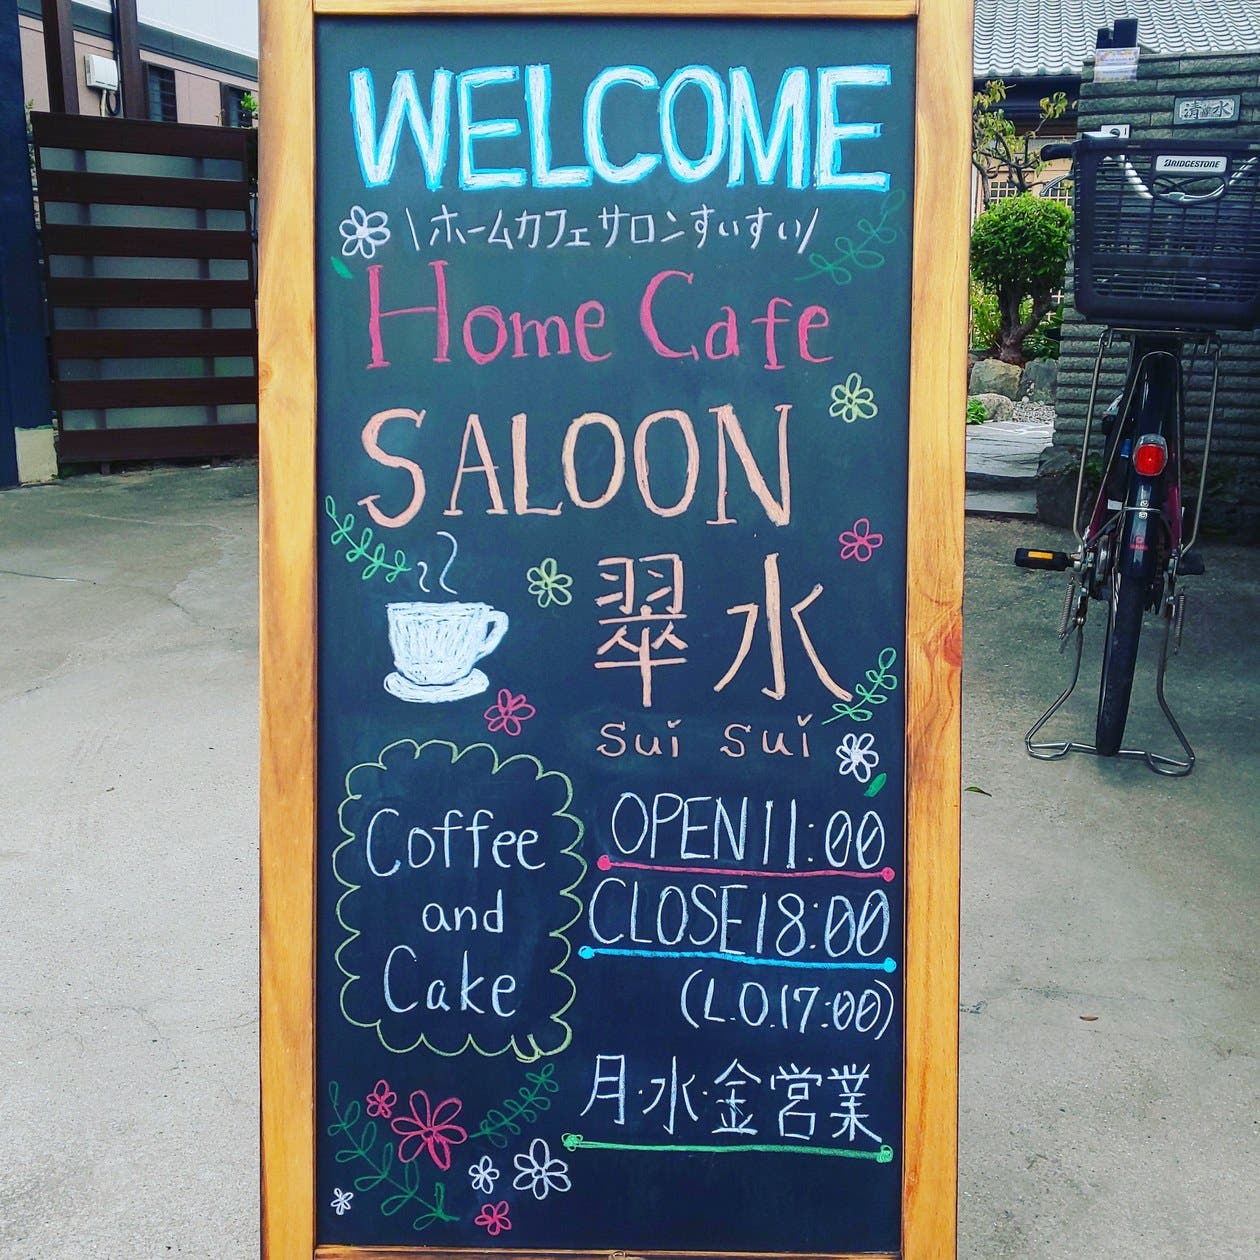 WELCOME
\ホームカフェサロンすいすい/
Home Cafe
SALOON
翠水
sui sui
Coffee
and
Cake
OPEN 11:00
CLOSE 18:00
(L.O.17:00)
月・水・金営業
BRIDGESTONE